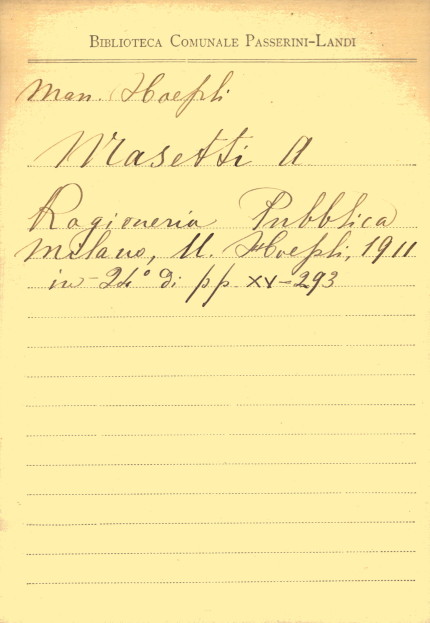 BIBLIOTECA COMUNALE PASSERINI-LANDI
Man. Hoepli
Masetti A
Ragioneria Pubblica
Milano, U. Hoepli, 1911
in-24° di pp. XV-293